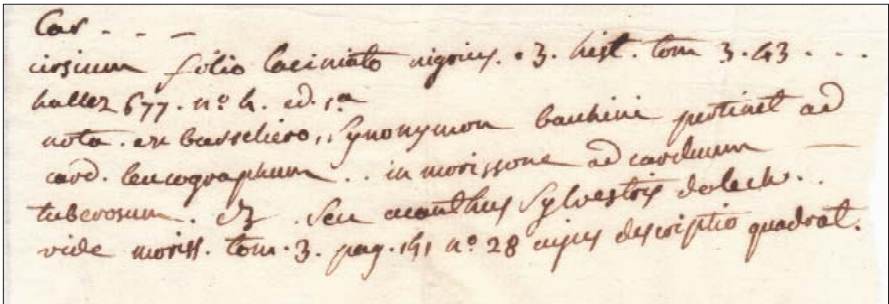 Car - - -
cirsium folio laciniato nigrius. J. B. hist. tom 3. 43 . . .
haller 677. nº 4. ed. 1ª
nota. ex busseliero, synonymon bauhini pertinet ad
card. leucographum . . in morissone ad carduum —
tuberosum. seu acanthus sylvestris dalech. .
vide moriss. tom. 3. pag. 191 nº 28 cujus descriptio quadrat.